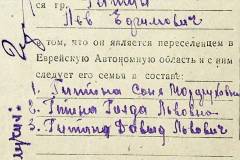 ся гр.
Лев Ефимович
в том, что он является переселенцем в
Еврейскую Автономную область и с ним
следует его семья в составе:
1. Гитина Соня Мордуховна
2. Гитина Голда Львовна
3. Гитина Давид Львович